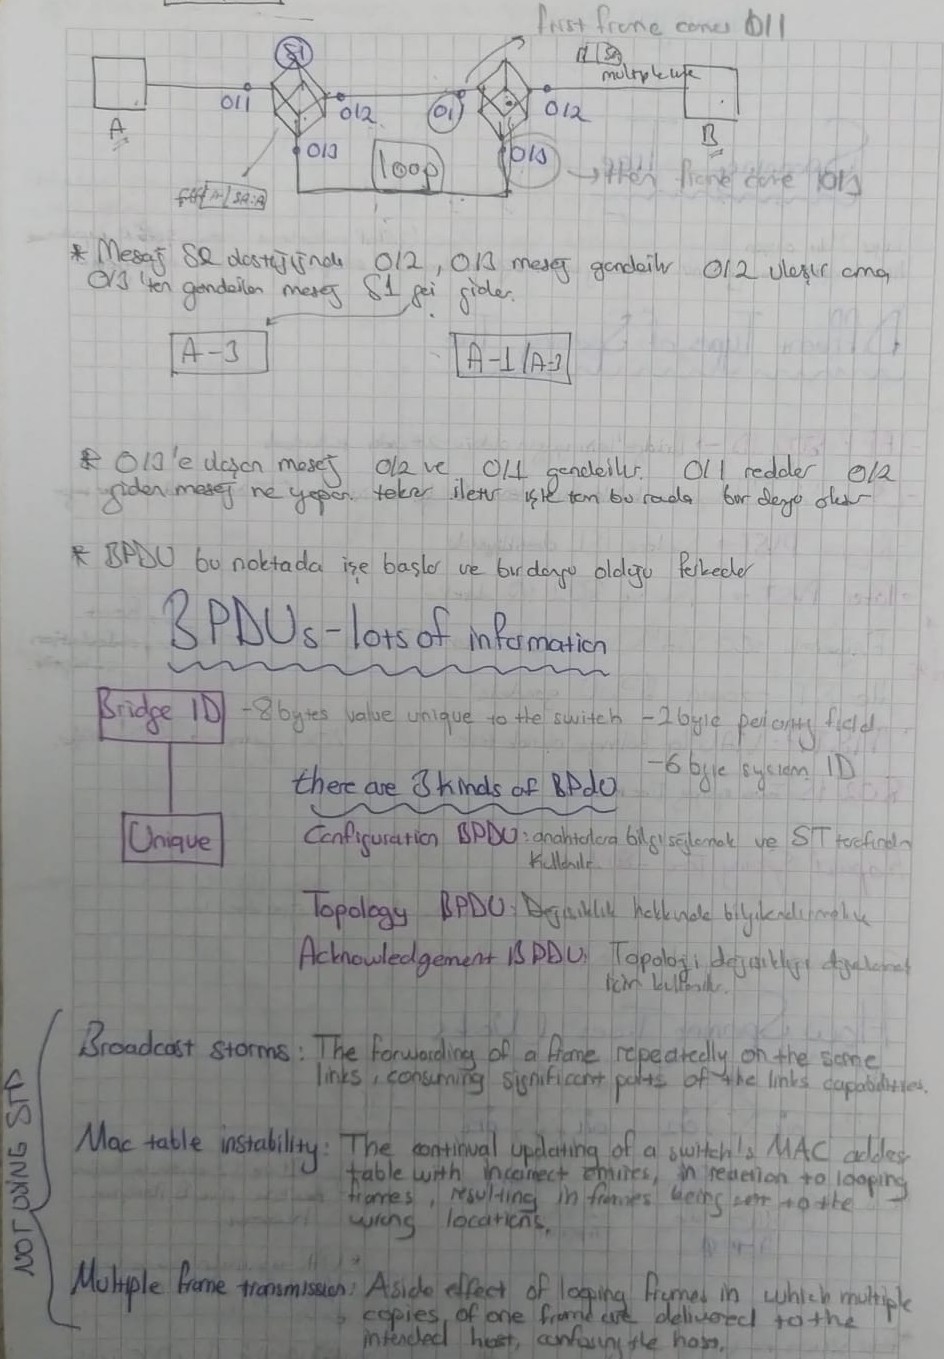 first frame comes 0|1
S1
A | SA
multiple
0|1
0|2
0|1
0|2
A
B
0|3
loop
0|3
→ then frame come 0|3
SA:A
* Mesaj S2 da 0|2, 0|3 mesaj gonderilir 0|2 ulaşır ama
0|3'ten gonderilen mesaj S1 geri gider.
A-3
A-1 / A-3
* 0|3'e düşen mesaj 0|2 ve 0|1 gonderilir. 0|1 redder 0|2
giden mesaj ne yapar tekrar iletir işte tam bu rada bir dongo olur
* BPDU bu noktada işe başlar ve bir dongo olduğu farkeder
BPDUs - lots of information
Bridge ID - 8 bytes value unique to the switch - 2 byte field
- 6 byte system ID
there are 3 kinds of BPdU
Unique
Configuration BPDU: anahtolara bilgi sağlamak ve ST tarafından
kullanılır.
Topology BPDU: Değişiklik hakkında
Acknowledgement BPDU: Topoloji değişikliği
için kullanılır.
NOT USING STP
Broadcast storms: The forwarding of a frame repeatedly on the same
links, consuming significant parts of the links capabilities.
Mac table instability: The continual updating of a switch's MAC addes
table with incorrect entires, in reaction to looping
frames, resulting in frames being sent to the
wrong locations.
Multiple frame transmission: A side effect of looping frames in which multiple
copies of one frame are delivered to the
intended host, confusing the host.